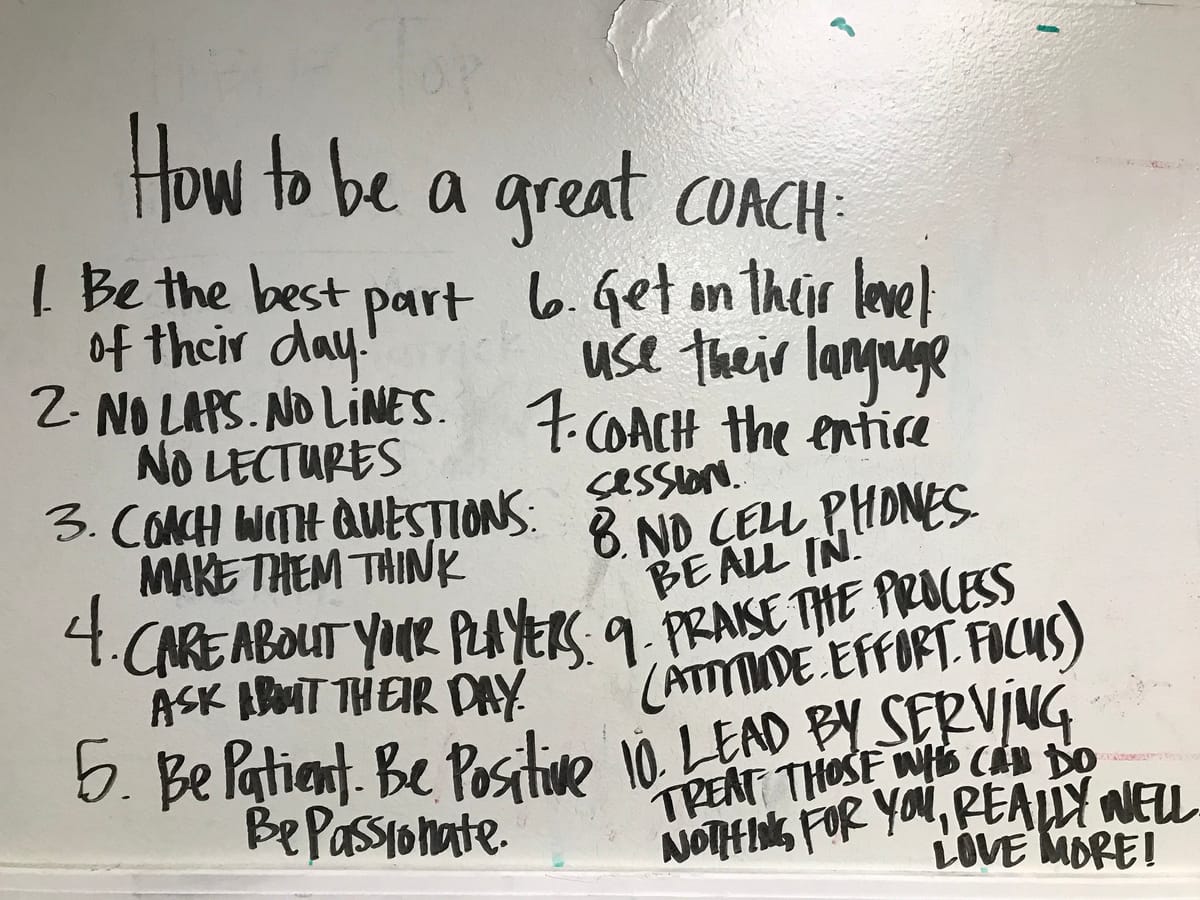 How to be a great COACH:
1. Be the best part
of their day.
2. NO LAPS. NO LiNES.
NO LECTURES
3. COACH WITH QUESTIONS:
MAKE THEM THINK
4. CARE ABOUT YOUR PLAYERS.
ASK ABOUT THEIR DAY.
5. Be Patient. Be Positive
Be Passionate.
6. Get on their level:
use their language
7. COACH the entire
session.
8. NO CELL PHONES.
BE ALL IN.
9. PRAISE THE PROCESS
(ATTITUDE. EFFORT. FOCUS)
10. LEAD BY SERVING
TREAT THOSE WHO CAN DO
NOTHING FOR YOU, REALLY WELL.
LOVE MORE!